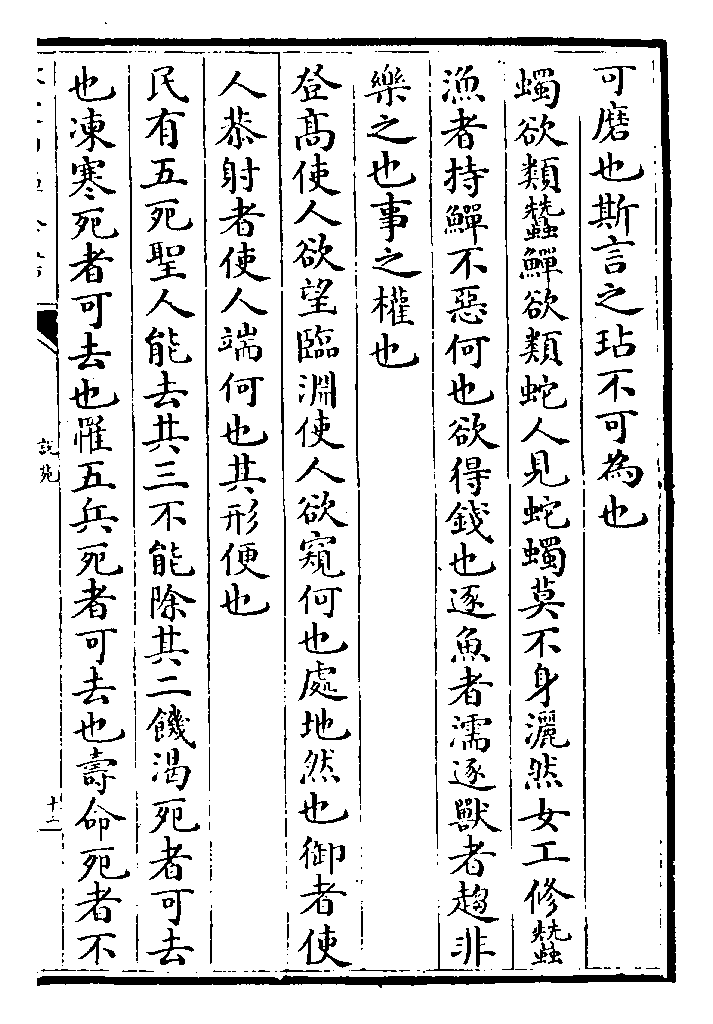 可磨也斯言之玷不可為也
蠋欲類蠶鱓欲類蛇人見蛇蠋莫不身灑然女工修蠶
漁者持鱓不惡何也欲得錢也逐魚者濡逐獸者趨非
樂之也事之權也
登髙使人欲望臨淵使人欲窺何也處地然也御者使
人恭射者使人端何也其形便也
民有五死聖人能去其三不能除其二饑渴死者可去
也凍寒死者可去也罹五兵死者可去也壽命死者不
說苑
十二